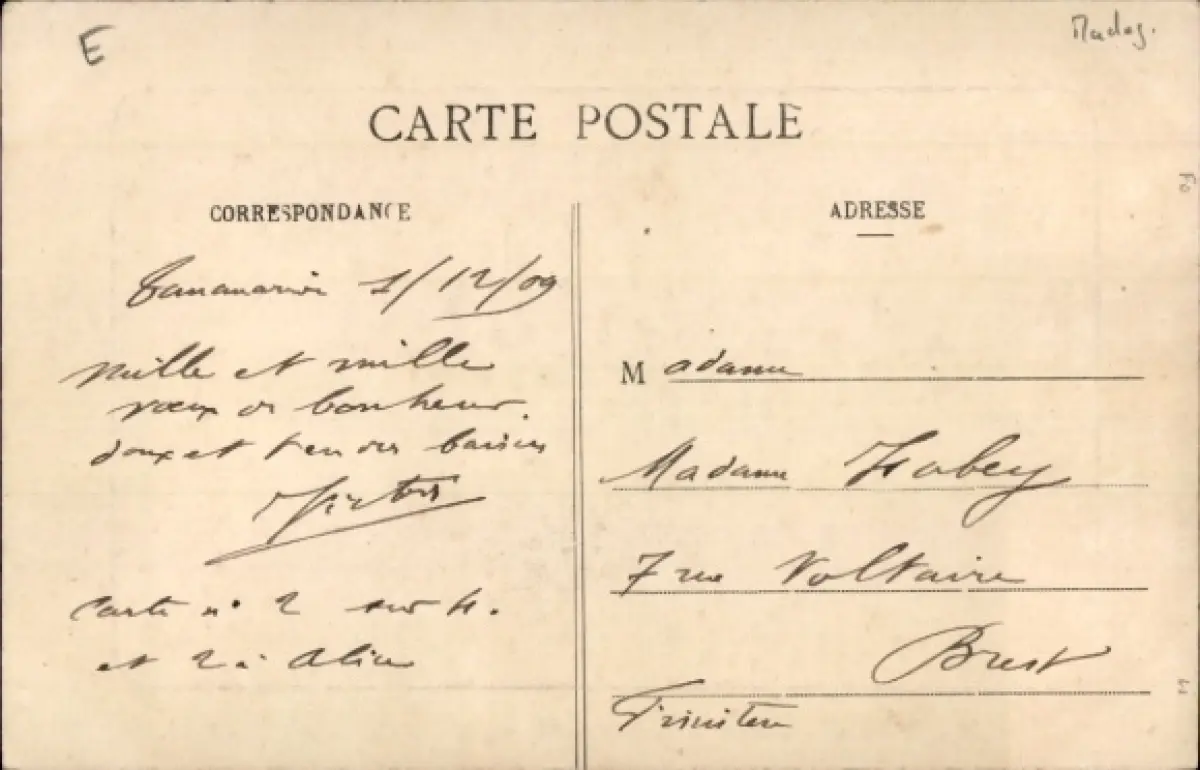 E
Madag.
CARTE POSTALE
CORRESPONDANCE
Tananarive 1/12/09
Mille et mille
vœux de bonheur.
doux et tendres baisers
Victor
Carte n° 2 sur 4.
et 2 à Alice
ADRESSE
Madame
Madame
7 rue Voltaire
Brest
Finistère